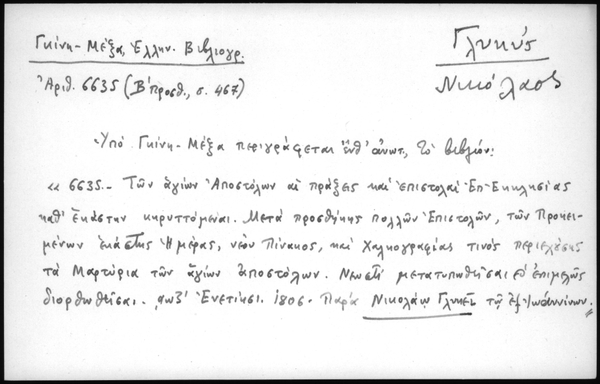 Γκίνη - Μέξα, Ἑλλην. Βιβλιογρ.
Γλυκύς
Νικόλαος
Ἀριθ. 6635 (Β' προσθ., σ. 467)
Ὑπό Γκίνη - Μέξα περιγράφεται ἔνθ' ἀνωτ., τό βιβλίον:
«6635.- Τῶν ἁγίων Ἀποστόλων αἱ πράξεις καί ἐπιστολαί ἐπ' Ἐκκλησίας
καθ' ἑκάστην κηρυττόμεναι. Μετά προσθήκης πολλῶν Ἐπιστολῶν, τῶν Προκει-
μένων ἑκάστης Ἡμέρας, νέου Πίνακος, καί Χαλκογραφίας τινός περιεχούσης
τά Μαρτύρια τῶν ἁγίων ἀποστόλων. Νεωστί μετατυπωθεῖσαι καί ἐπιμελῶς
διορθωθεῖσαι. ͵αωϛ' Ἐνετίῃσι. 1806. Παρά Νικολάῳ Γλυκεῖ τῷ ἐξ Ἰωαννίνων.